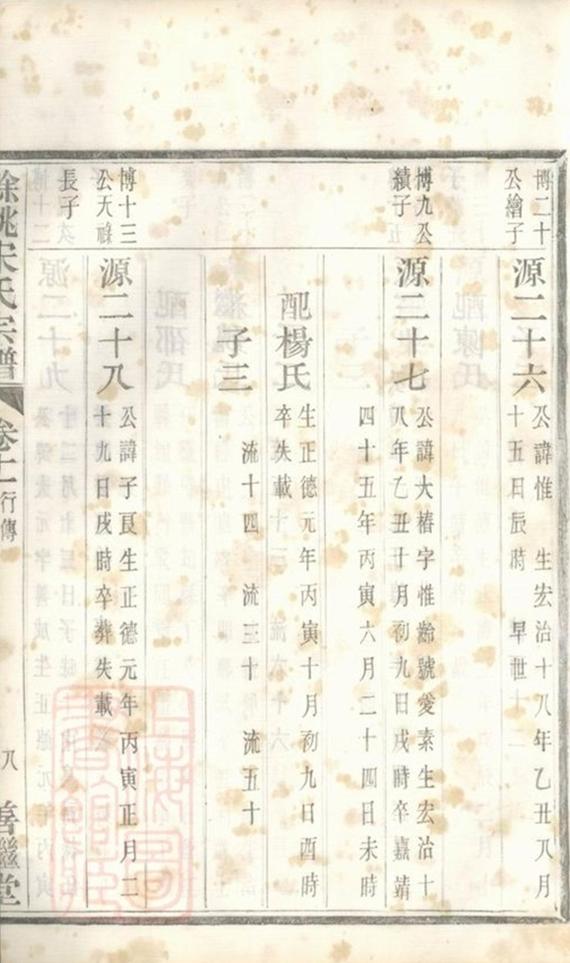 博二十
公繪子
源二十六
公諱惟　生宏治十八年乙丑八月
十五日辰時　早世
博九公
績子
源二十七
公諱大椿字惟齡號愛素生宏治十
八年乙丑十月初九日戌時卒嘉靖
四十五年丙寅六月二十四日未時
配楊氏
生正德元年丙寅十月初九日酉時
卒失載
子三
流十四　流三十　流五十
博十三
公天祿
長子
源二十八
公諱子良生正德元年丙寅正月二
十九日戌時卒葬失載
餘姚宋氏宗譜
卷十一
行傳
八
善繼堂